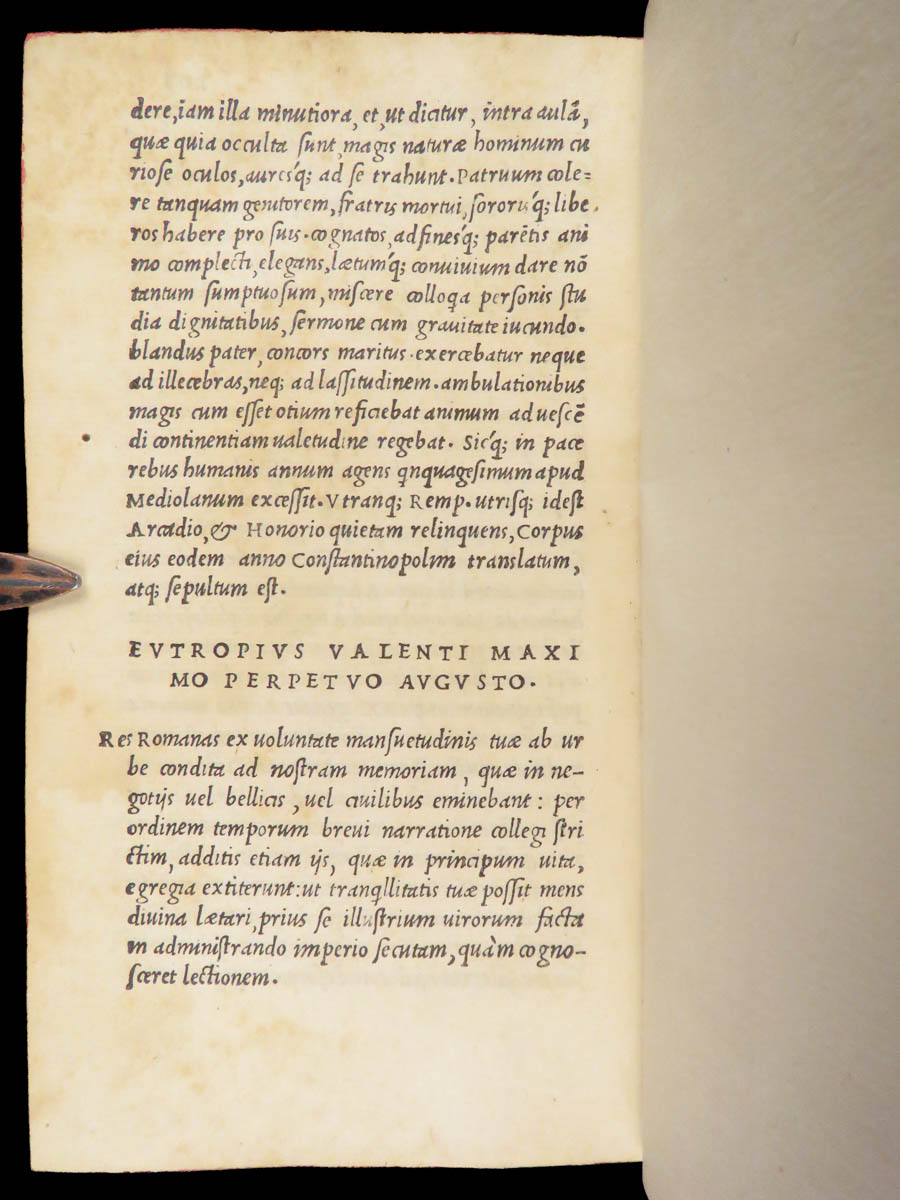 dere, iam illa minutiora, et, ut dicitur, intra aulã,
quæ quia occulta ſunt, magis naturæ hominum cu
rioſe oculos, aureſq́; ad ſe trahunt. Patruum cole=
re tanquam genitorem, fratris mortui, ſororiſq́; libe
ros habere pro ſuis. cognatos, adfineſq́; parẽtis ani
mo complecti, elegans, lætumq́; conuiuium dare nõ
tantum ſumptuoſum, miſcere colloqa perſonis ſtu
dia dignitatibus, ſermone cum grauitate iucundo.
blandus pater, concors maritus. exercebatur neque
ad illecebras, neq; ad laſſitudinem. ambulationibus
magis cum eſſet otium reficiebat animum ad ueſcẽ
di continentiam ualetudine regebat. Sicq́; in pace
rebus humanis annum agens qnquageſimum apud
Mediolanum exceſſit. Vtranq; Remp. utriſq; ideſt
Arcadio, & Honorio quietam relinquens, Corpus
eius eodem anno Conſtantinopolim translatum,
atq; ſepultum eſt.
EVTROPIVS VALENTI MAXI
MO PERPETVO AVGVSTO.
Res Romanas ex uoluntate manſuetudinis tuæ ab ur
be condita ad noſtram memoriam, quæ in ne-
gotijs uel bellicis, uel ciuilibus eminebant: per
ordinem temporum breui narratione collegi ſtri
ctim, additis etiam ijs, quæ in principum uita,
egregia extiterunt: ut tranqllitatis tuæ poſſit mens
diuina lætari, prius ſe illuſtrium uirorum facta
in adminiſtrando imperio ſecutam, quàm cogno-
ſceret lectionem.